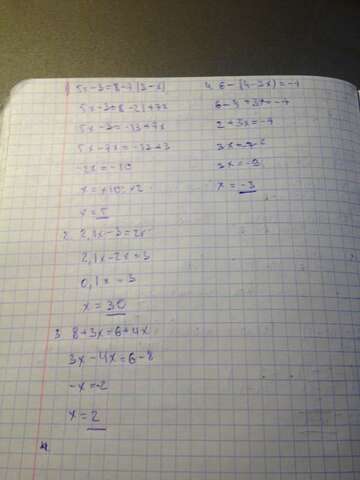 1 5x-3=8-7(3-x)
5x-3=8-21+7x
5x-3=-13+7x
5x-7x=-13+3
-2x=-10
x=+10:+2
x=5
2. 2,1x-3=2x
2,1x-2x=3
0,1x=3
x=30
3 8+3x=6+4x
3x-4x=6-8
-x=-2
x=2
4. 6-(4-3x)=-7
6-4+3x=-7
2+3x=-7
3x=-7-2
3x=-9
x=-3